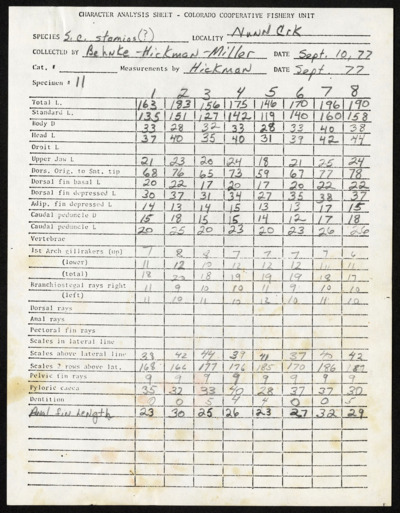 CHARACTER ANALYSIS SHEET - COLORADO COOPERATIVE FISHERY UNIT
SPECIES S.c. stomias(?) LOCALITY Nunn Crk
COLLECTED BY Behnke - Hickman - Miller DATE Sept. 10, 77
Cat. # Measurements by Hickman DATE Sept. 77
Specimen # 11
1 2 3 4 5 6 7 8
Total L. 163 183 156 175 146 170 196 190
Standard L. 135 151 127 142 119 140 160 158
Body D 33 28 32 33 28 33 40 38
Head L 37 40 35 40 31 39 42 44
Orbit L
Upper Jaw L 21 23 20 24 18 21 25 24
Dors. Orig. to Snt. tip 68 76 65 73 59 67 77 78
Dorsal fin basal L 20 22 17 20 17 20 22 22
Dorsal fin depressed L 30 37 31 34 27 35 38 37
Adip. fin depressed L 14 13 14 15 13 13 17 15
Caudal peduncle D 15 18 15 15 14 12 17 18
Caudal peduncle L 20 25 20 23 20 23 26 26
Vertebrae
1st Arch gillrakers (up) 7 8 8 7 7 7 7 6
(lower) 11 12 12 12 11
(total) 18 18 19 19 19 18 17
Branchiostegal rays right 11 9 10 10 11 9 10 10
(left) 11 10 11 10 10 11 10
Dorsal rays
Anal rays
Pectoral fin rays
Scales in lateral line
Scales above lateral line 38 42 44 39 41 37 42
Scales 2 rows above lat. 168 166 177 176 185 170 186
Pelvic fin rays 9 9 9 9 9 9 9 9
Pyloric caeca 35 32 33 40 28 37 37 30
Dentition 0 0 5 4 4 0 0 5
Anal fin length 23 30 25 26 23 27 32 29